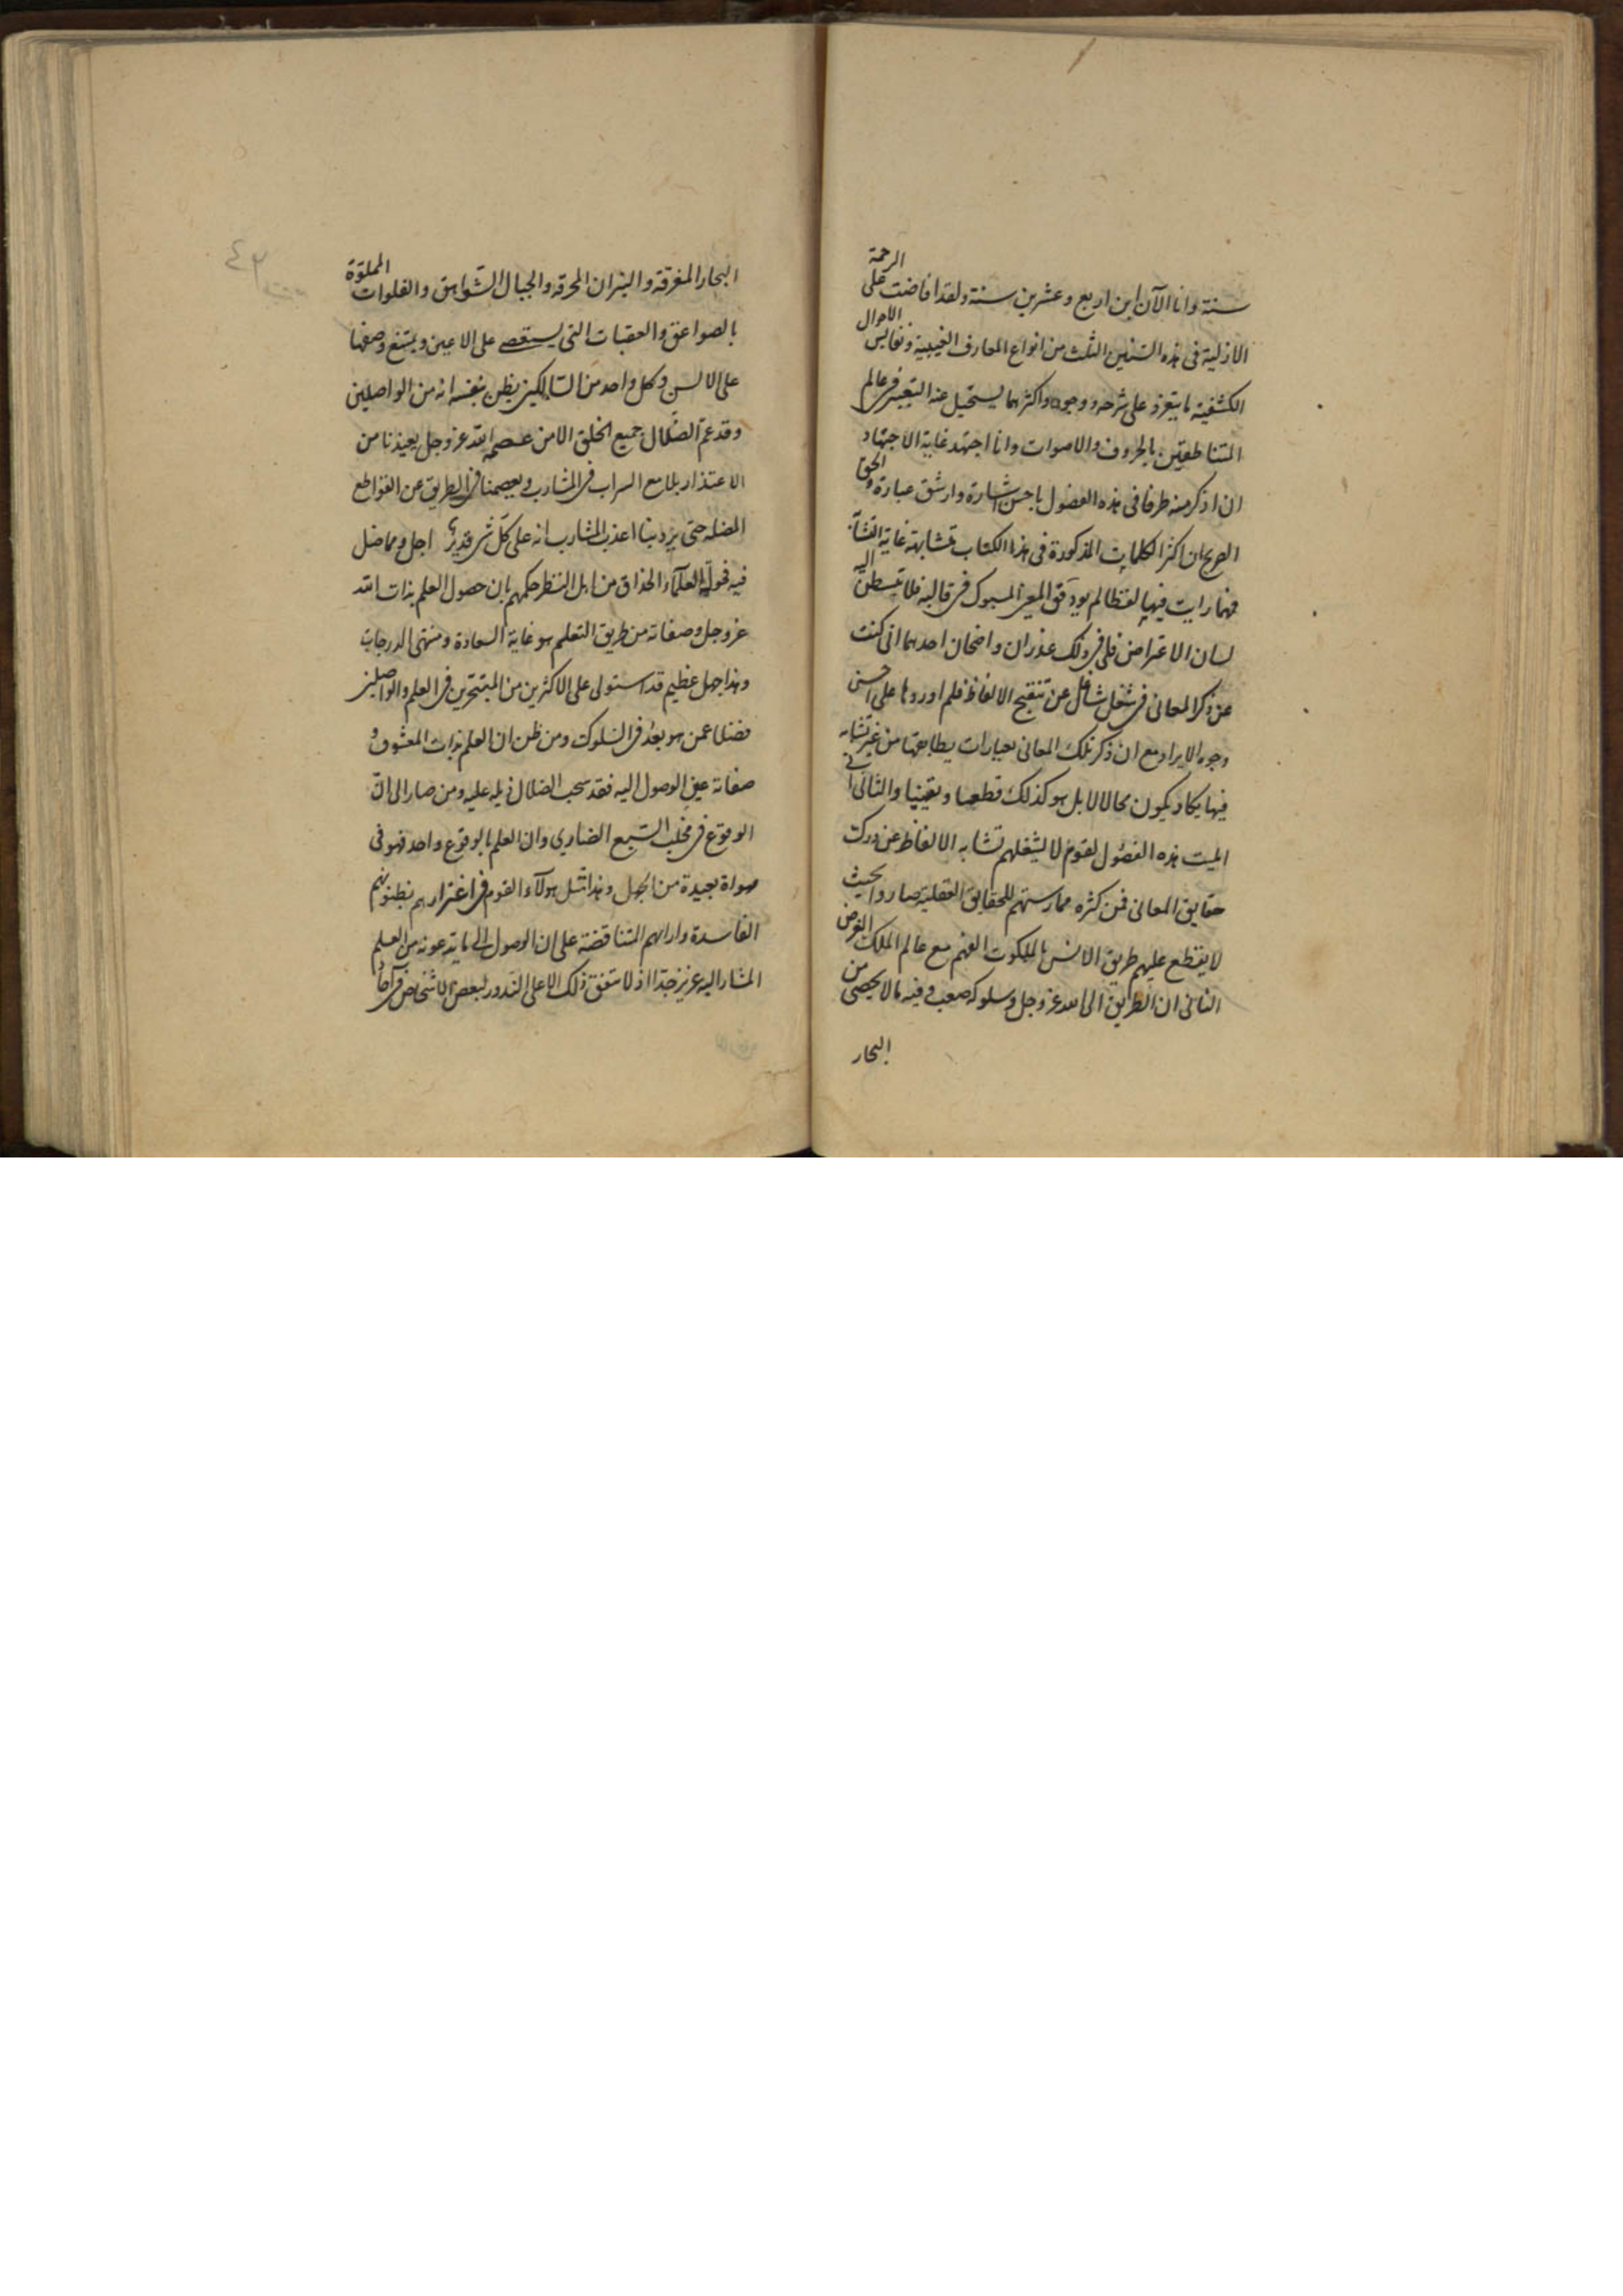 سنة وانا الآن ابن اربع وعشرين سنة ولقد افاضت على الرحمة
الازلية فى هذه السنين الثلث من انواع المعارف الغيبية ونفايس الاحوال
الكشفية ما يتعزر على شرحه ووجوه واكثرها يستحيل عنه التعبير فى عالم
المتناطقين بالحروف والاصوات وانا اجتهد غاية الاجتهاد
ان اذكر منه طرفا فى هذه الفصول باحسن اشارة وارشق عبارة والحق
الصريح ان اكثر الكلمات المذكورة فى هذا الكتاب متشابهة غاية التشابه
فمهما رايت فيها لفظا لم يود حق المعنى المسبوك فى قالبه فلا تبسطن اليه
لسان الاعتراض فلى فى ذلك عذران واضحان احدهما انى كنت
عن ذكر المعانى فى شغل شاغل عن تنقيح الالفاظ فلم اوردها على احسن
وجوه الايراد مع ان ذكر تلك المعانى بعبارات يطابقها من غير تشابه
فيها يكاد يكون محالا لا بل هو كذلك قطعا ويقينا والثانى انى
اثبت هذه الفصول لقوم لا يشغلهم تشابه الالفاظ عن درك
حقايق المعانى فمن كثرة ممارستهم للحقايق العقلية صاروا بحيث
لا ينقطع عليهم طريق الانس بالملكوت الفهم مع عالم الملك الغرض
الثانى ان الطريق الى الله عز وجل وسلوكه صعب وفيه ما لا يحصى من
البحار
٤٣
البحار المغرقة والنيران المحرقة والجبال الشواهق والفلوات المملوة
بالصواعق والعقبات التى يستعصى على الاعين ويمتنع وصفها
على الالسن وكل واحد من السالكين يظن بنفسه انه من الواصلين
وقد عم الضلال جميع الخلق الا من عصمه الله عز وجل يعيذنا من
الاغترار بلامع السراب فى المشارب ويعصمنا فى الطريق عن القواطع
المضلة حتى يرد بنا اعذب المشارب انه على كل شى قدير اجل ومما ضل
فيه فحول العلمآء الحذاق من اهل النظر حكمهم بان حصول العلم بذات الله
عز وجل وصفاته من طريق التعلم هو غاية السعادة ومنتهى الدرجات
وهذا جهل عظيم قد استولى على الاكثرين من المتبحرين فى العلم والواصلين
فضلا عمن هو بعد فى السلوك ومن ظن ان العلم بذات المعشوق و
صفاته عين الوصول اليه فقد سحب الضلال ذيله عليه ومن صار الى ان
الوقوع فى مخلب السبع الضارى وان العلم بالوقوع واحد فهو فى
مهواة بعيدة من الجهل وهذا مثل هؤلآء القوم فى اغترارهم بظنونهم
الفاسدة وارائهم المتناقضة على ان الوصول الى ما يدعونه من العلم
المشار اليه عزيز جدا اذ لا يتفق ذلك الا على الندور لبعض الاشخاص فى آحاد